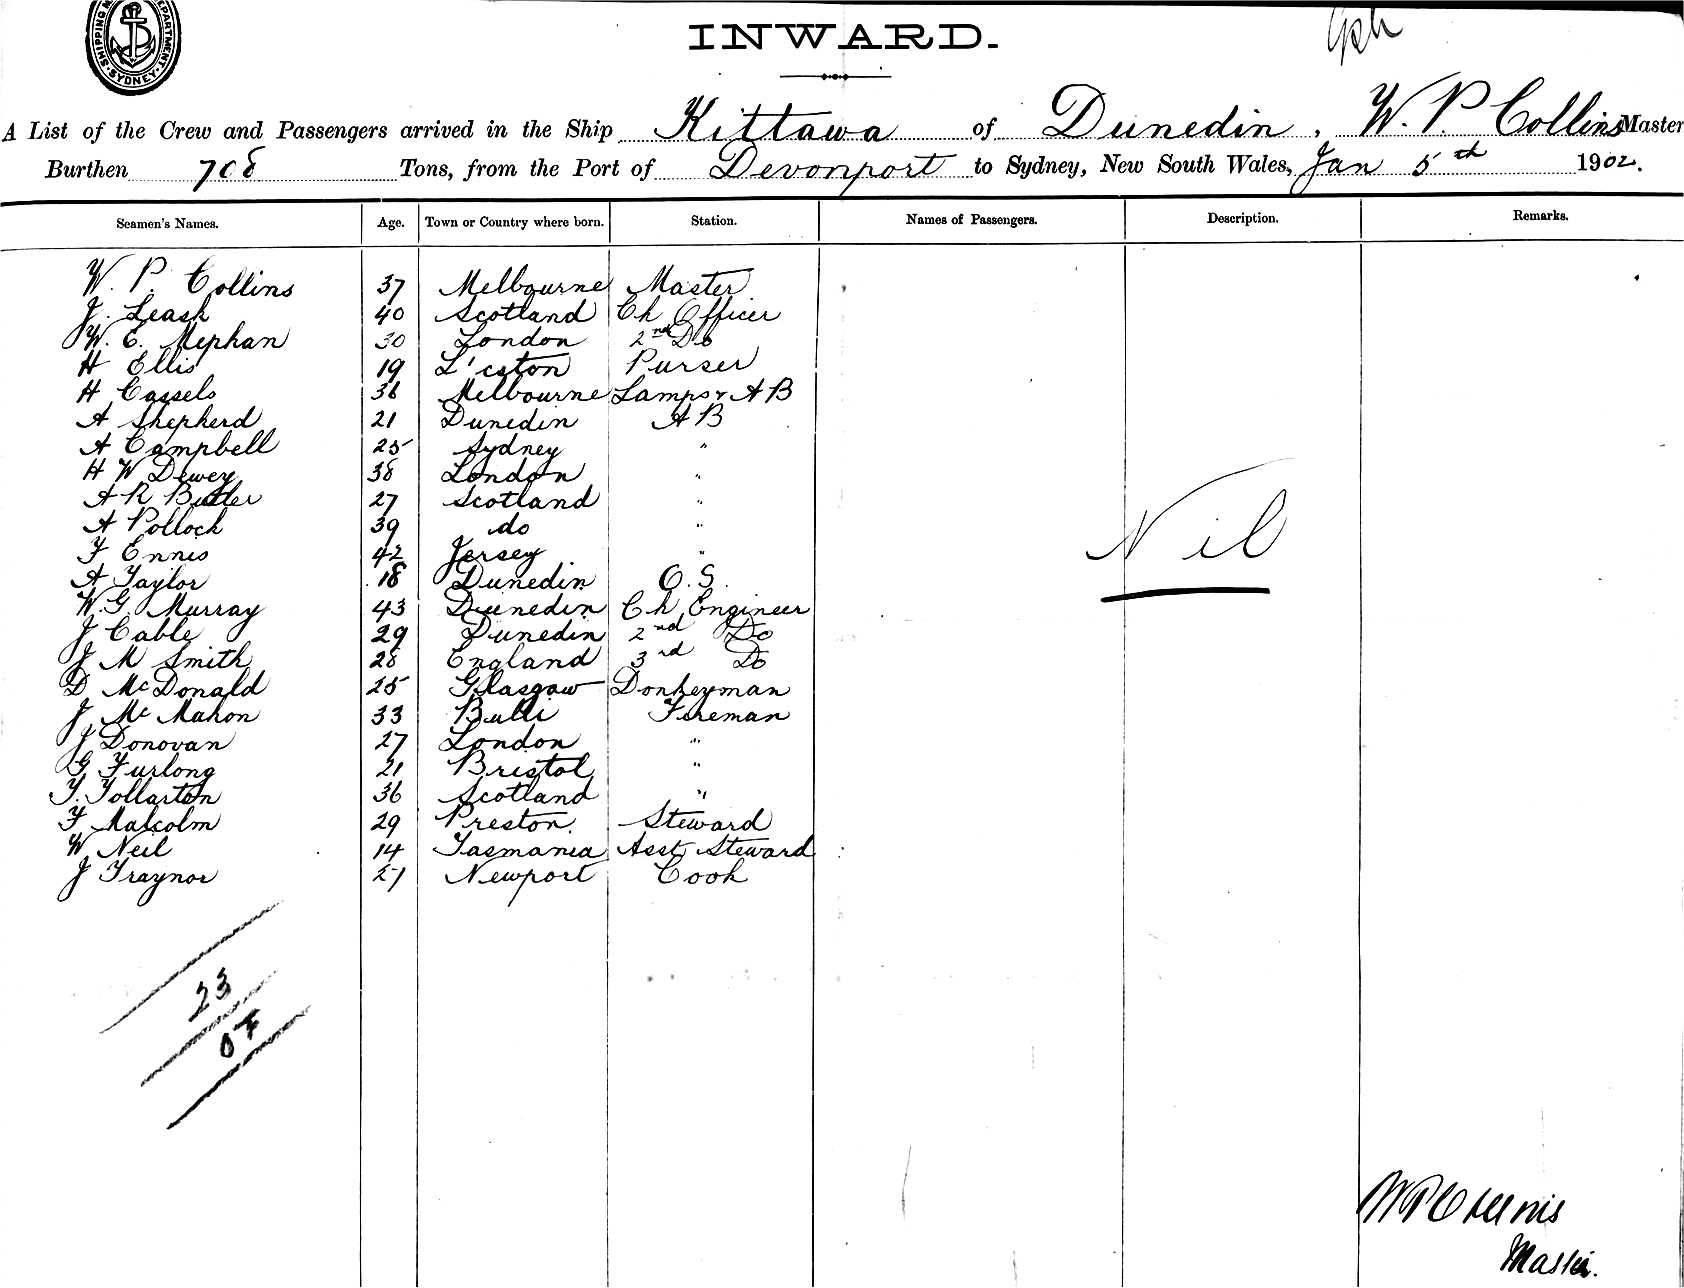 SHIPPING M DEPARTMENT
SYDNEY
INWARD.
A List of the Crew and Passengers arrived in the Ship Kittawa of Dunedin, W. P. Collins Master
Burthen 708 Tons, from the Port of Devonport to Sydney, New South Wales, Jan 5th 1902.
Seamen's Names. Age. Town or Country where born. Station. Names of Passengers. Description. Remarks.
W. P. Collins 37 Melbourne Master
J. Leask 40 Scotland Ch Officer
W. E. Mephan 30 London 2nd Do
H Ellis 19 L'ceston Purser
H Cassels 36 Melbourne Lamps & A B
A Shepherd 21 Dunedin A B
A Campbell 25 Sydney "
H W Dewey 38 London "
A R Butler 27 Scotland "
A Pollock 39 do "
F Ennis 42 Jersey "
A Taylor 18 Dunedin O.S.
W. G. Murray 43 Dunedin Ch Engineer
J Cable 29 Dunedin 2nd Do
J M Smith 28 England 3rd Do
D McDonald 25 Glasgow Donkeyman
J McMahon 33 Bulli Fireman
J Donovan 27 London "
G Furlong 21 Bristol "
T. Tollarton 36 Scotland "
F Malcolm 29 Preston. Steward
W Neil 14 Tasmania Asst Steward
J Traynor 27 Newport Cook
Nil
23
07
W P Collins
Master.